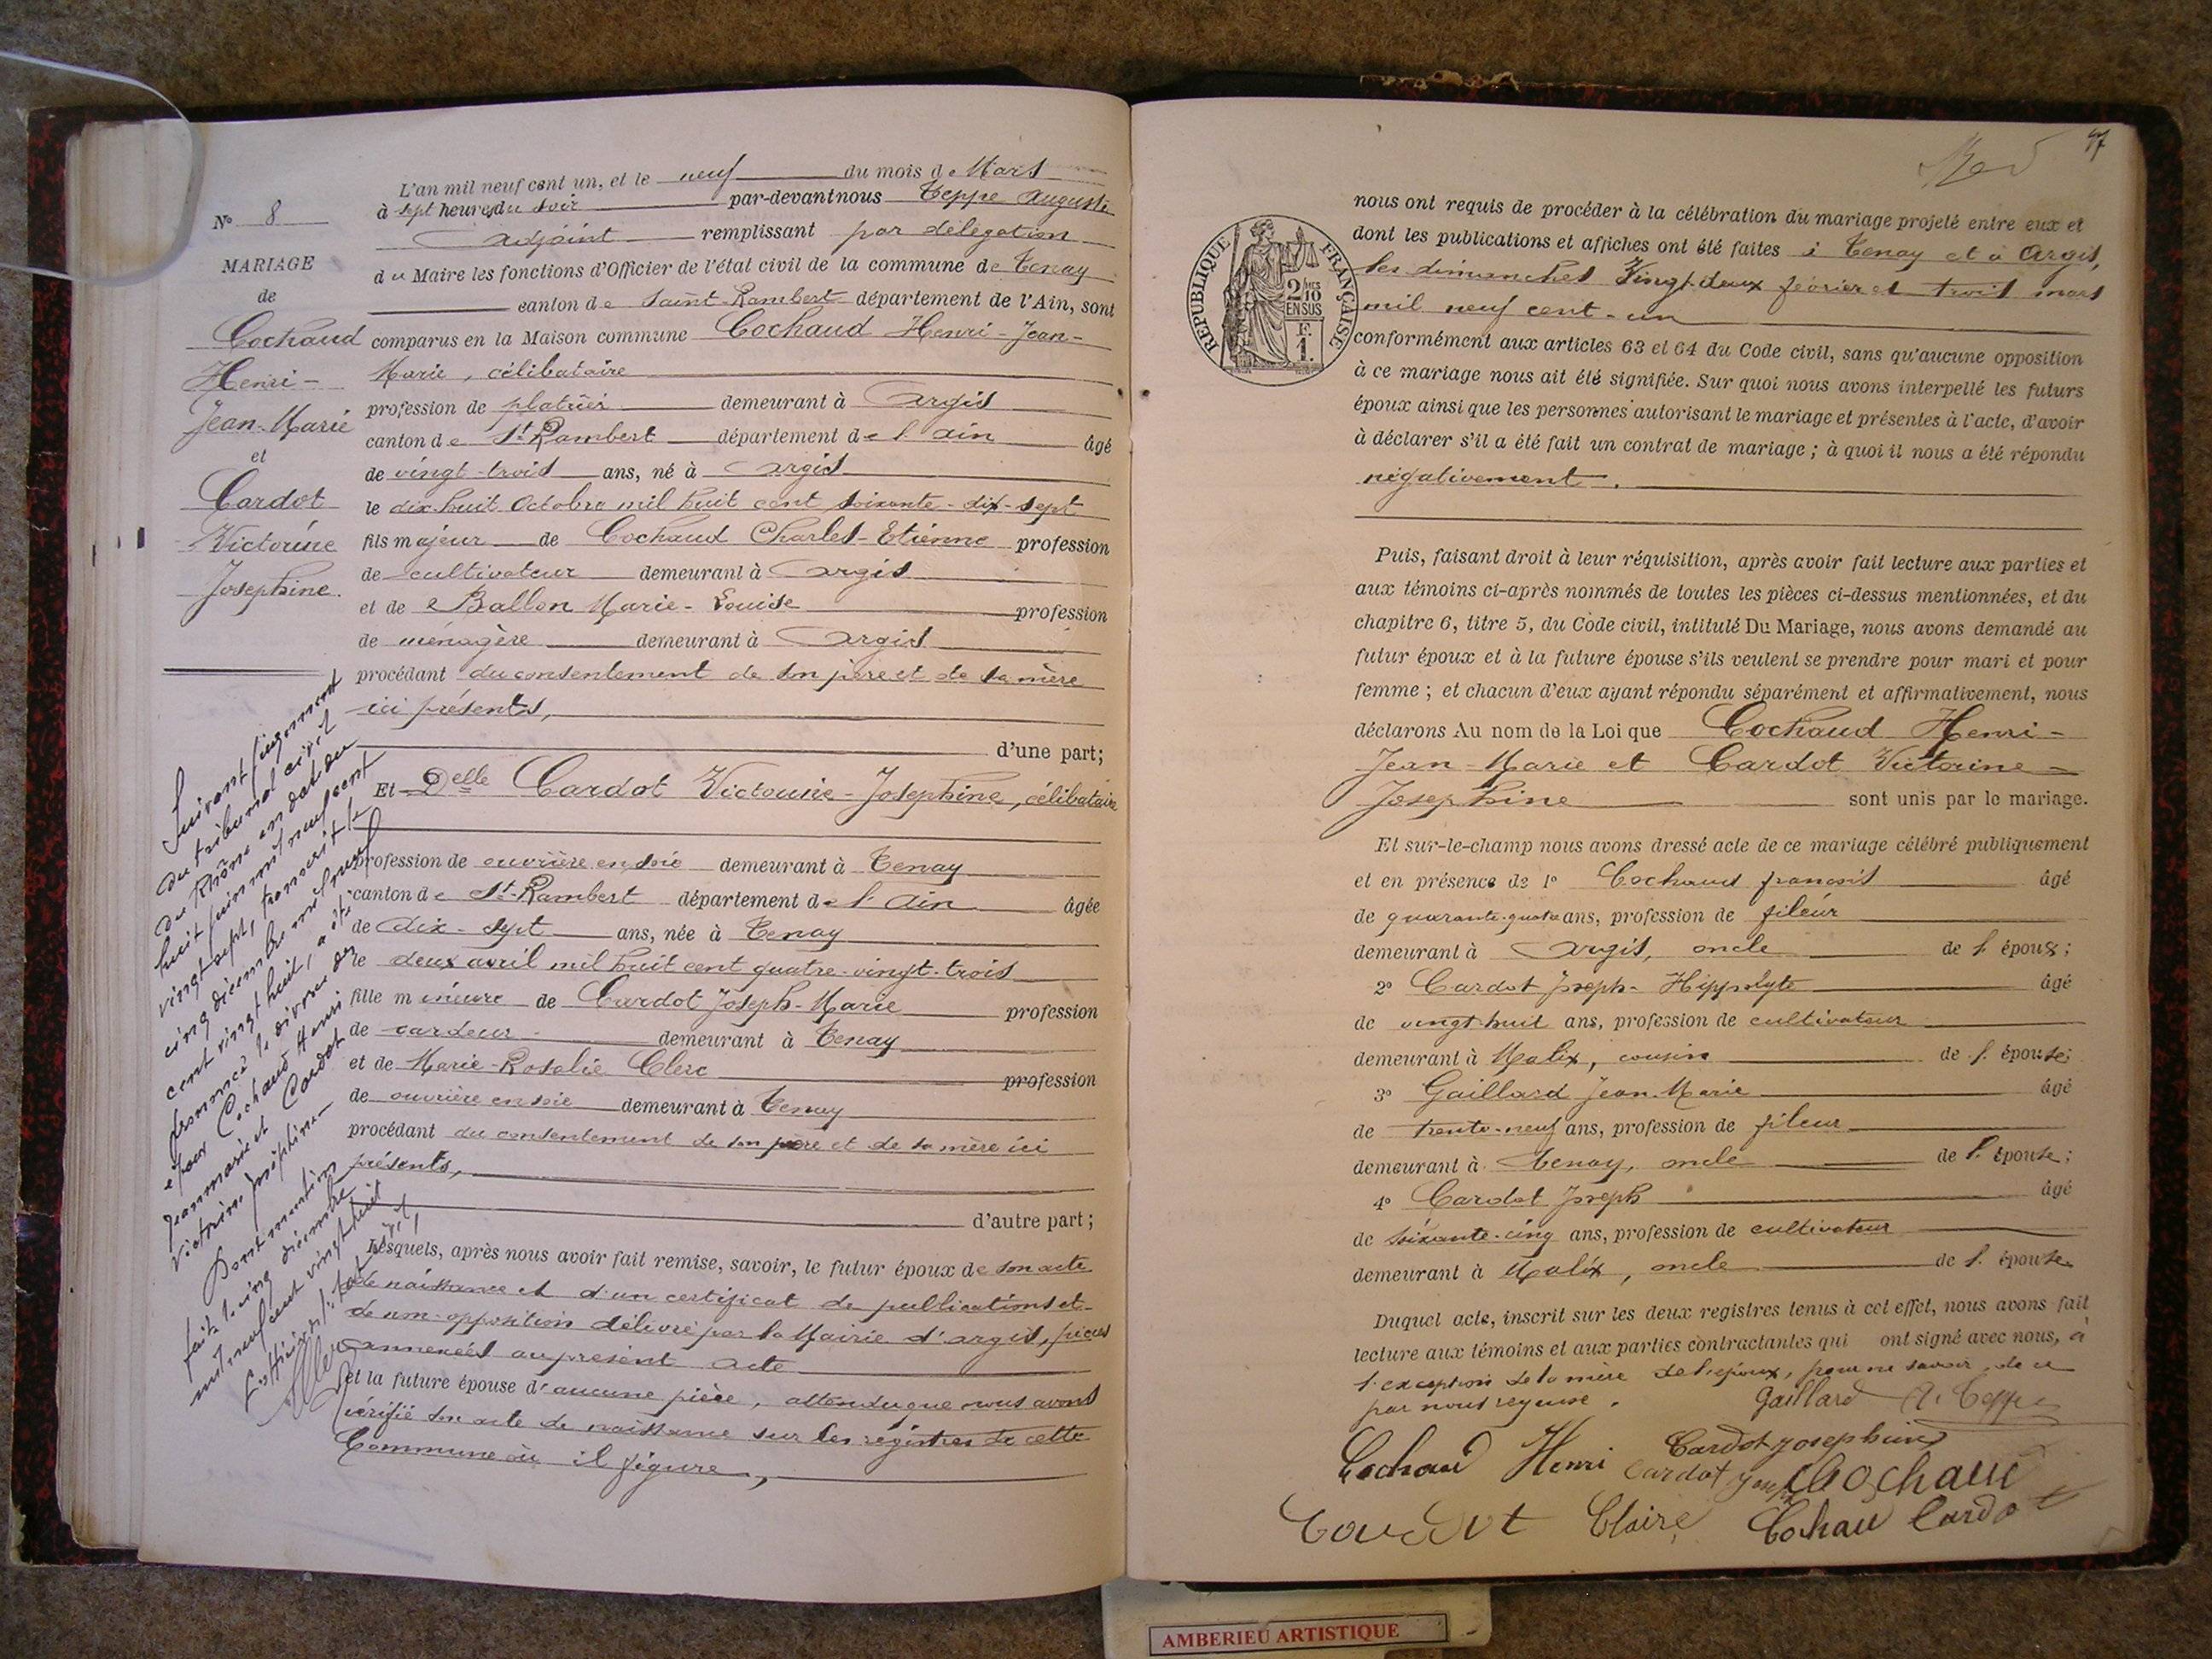 L'an mil neuf cent un, et le neuf du mois de Mars
à sept heures du soir par-devant nous Teppe Auguste
adjoint remplissant par délégation
du Maire les fonctions d'Officier de l'état civil de la commune de Tenay
canton de Saint-Rambert département de l'Ain, sont
comparus en la Maison commune Cochaud Henri-Jean-
Marie, célibataire
profession de platrier demeurant à Argis
canton de St Rambert département de l'ain âgé
de vingt-trois ans, né à Argis
le dix-huit Octobre mil huit cent soixante-dix-sept
fils majeur de Cochaud Charles-Etienne profession
de cultivateur demeurant à Argis
et de Ballon Marie-Louise profession
de ménagère demeurant à Argis
procédant du consentement de son père et de sa mère
ici présents,
d'une part;
Et Delle Cardot Victorine-Josephine, célibataire
profession de ouvrière en soie demeurant à Tenay
canton de St-Rambert département de l'Ain âgée
de dix-sept ans, née à Tenay
le deux avril mil huit cent quatre-vingt-trois
fille mineure de Cardot Joseph-Marie profession
de cardeur demeurant à Tenay
et de Marie-Rosalie Clerc profession
de ouvrière en soie demeurant à Tenay
procédant du consentement de son père et de sa mère ici
présents,
d'autre part;
Lesquels, après nous avoir fait remise, savoir, le futur époux de son acte
de naissance et d'un certificat de publications et
de non-opposition délivré par la Mairie d'Argis, pièces
annexées au présent acte
et la future épouse d'aucune pièce, attendu que nous avons
vérifié son acte de naissance sur les registres de cette
Commune où il figure,
No 8
MARIAGE
de
Cochaud
Henri-
Jean-Marie
et
Cardot
Victorine
Josephine.
Suivant jugement
du tribunal civil
du Rhône en date du
huit juin mil neuf cent
vingt sept, transcrit le
cinq décembre mil neuf
cent vingt huit, a été
prononcé le divorce des
époux Cochaud Henri
Jean marie et Cardot
Victorine Joséphine
Dont mention
faite le cinq décembre
mil neuf cent vingt huit
L'officier de l'état civil,
47
REPUBLIQUE FRANÇAISE
2/10 MES
EN SUS
F.
1.
nous ont requis de procéder à la célébration du mariage projeté entre eux et
dont les publications et affiches ont été faites à Tenay et à Argis,
les dimanches Vingt-deux février et trois mars
mil neuf cent-un
conformément aux articles 63 et 64 du Code civil, sans qu'aucune opposition
à ce mariage nous ait été signifiée. Sur quoi nous avons interpellé les futurs
époux ainsi que les personnes autorisant le mariage et présentes à l'acte, d'avoir
à déclarer s'il a été fait un contrat de mariage; à quoi il nous a été répondu
négativement.
Puis, faisant droit à leur réquisition, après avoir fait lecture aux parties et
aux témoins ci-après nommés de toutes les pièces ci-dessus mentionnées, et du
chapitre 6, titre 5, du Code civil, intitulé Du Mariage, nous avons demandé au
futur époux et à la future épouse s'ils veulent se prendre pour mari et pour
femme; et chacun d'eux ayant répondu séparément et affirmativement, nous
déclarons Au nom de la Loi que Cochaud Henri-
Jean-Marie et Cardot Victorine-
Josephine sont unis par le mariage.
Et sur-le-champ nous avons dressé acte de ce mariage célébré publiquement
et en présence de 1o Cochaud françois âgé
de quarante-quatre ans, profession de fileur
demeurant à Argis, oncle de l'époux;
2o Cardot Joseph-Hippolyte âgé
de vingt-huit ans, profession de cultivateur
demeurant à Malix, cousin de l'épouse;
3o Gaillard Jean-Marie âgé
de trente-neuf ans, profession de fileur
demeurant à Tenay, oncle de l'épouse;
4o Cardot Joseph âgé
de soixante-cinq ans, profession de cultivateur
demeurant à Malix, oncle de l'épouse
Duquel acte, inscrit sur les deux registres tenus à cet effet, nous avons fait
lecture aux témoins et aux parties contractantes qui ont signé avec nous, à
l'exception de la mère de l'époux, pour ne savoir, de ce
par nous requise.
Gaillard A. Teppe
Cochaud Henri Cardot Josephine
Cardot Joseph Cochaud
Cardot Claire Cochau Cardot
AMBERIEU ARTISTIQUE